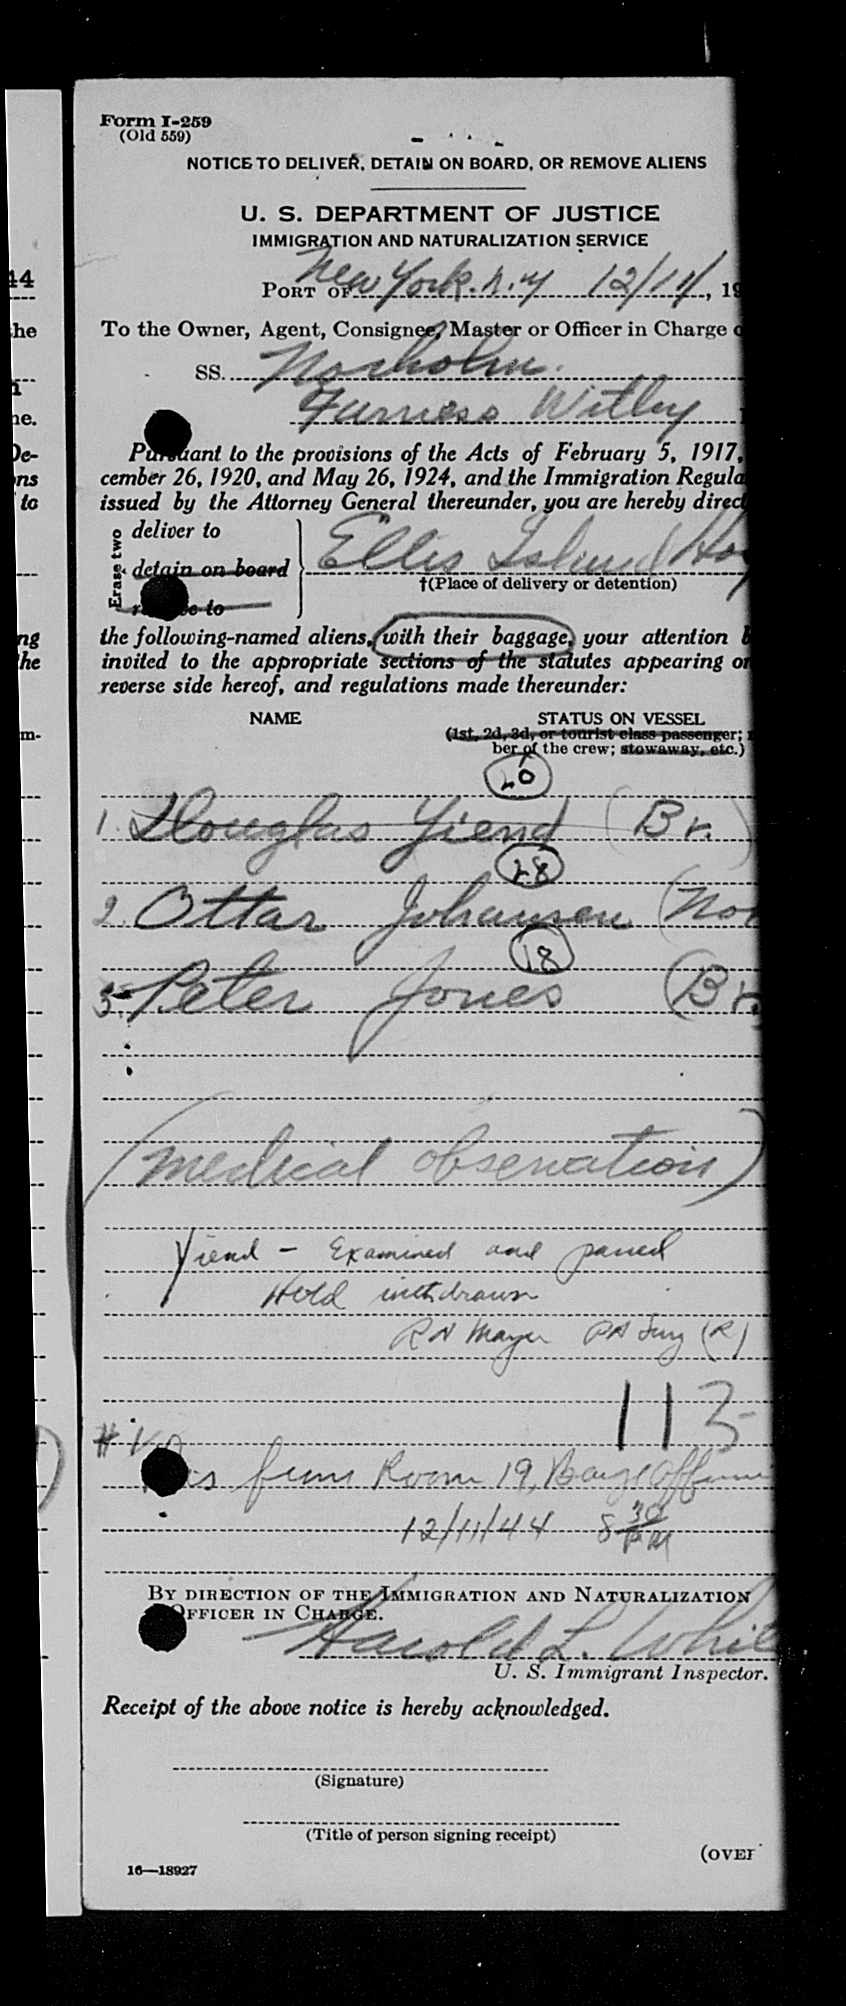 44
he
ne.
De-
ons
to
ng
he
m-
Form I-259
(Old 559)
NOTICE TO DELIVER, DETAIN ON BOARD, OR REMOVE ALIENS
U. S. DEPARTMENT OF JUSTICE
IMMIGRATION AND NATURALIZATION SERVICE
PORT OF New York. N.Y 12/11/, 19
To the Owner, Agent, Consignee, Master or Officer in Charge o
SS. Norholm.
Furness Witley
Pursuant to the provisions of the Acts of February 5, 1917,
cember 26, 1920, and May 26, 1924, and the Immigration Regula
issued by the Attorney General thereunder, you are hereby direct
Erase two
deliver to
detain on board
Ellis Island Hos
†(Place of delivery or detention)
the following-named aliens, with their baggage, your attention
invited to the appropriate sections of the statutes appearing on
reverse side hereof, and regulations made thereunder:
NAME STATUS ON VESSEL
(1st, 2d, 3d, or tourist class passenger;
ber of the crew; stowaway, etc.)
20
1. Douglas Yiend (Br.)
28
2. Ottar Johansen (Nor
18
3. Peter Jones (Br.
(medical observation)
Yiend - Examined and passed
Hold withdrawn
R N Mayer PA Surg (R)
113
#1
from Room 19, Barge Office
12/11/44 8 30 PM
BY DIRECTION OF THE IMMIGRATION AND NATURALIZATION
OFFICER IN CHARGE.
Harold L. Whit
U. S. Immigrant Inspector.
Receipt of the above notice is hereby acknowledged.
(Signature)
(Title of person signing receipt)
(OVER
16—18927